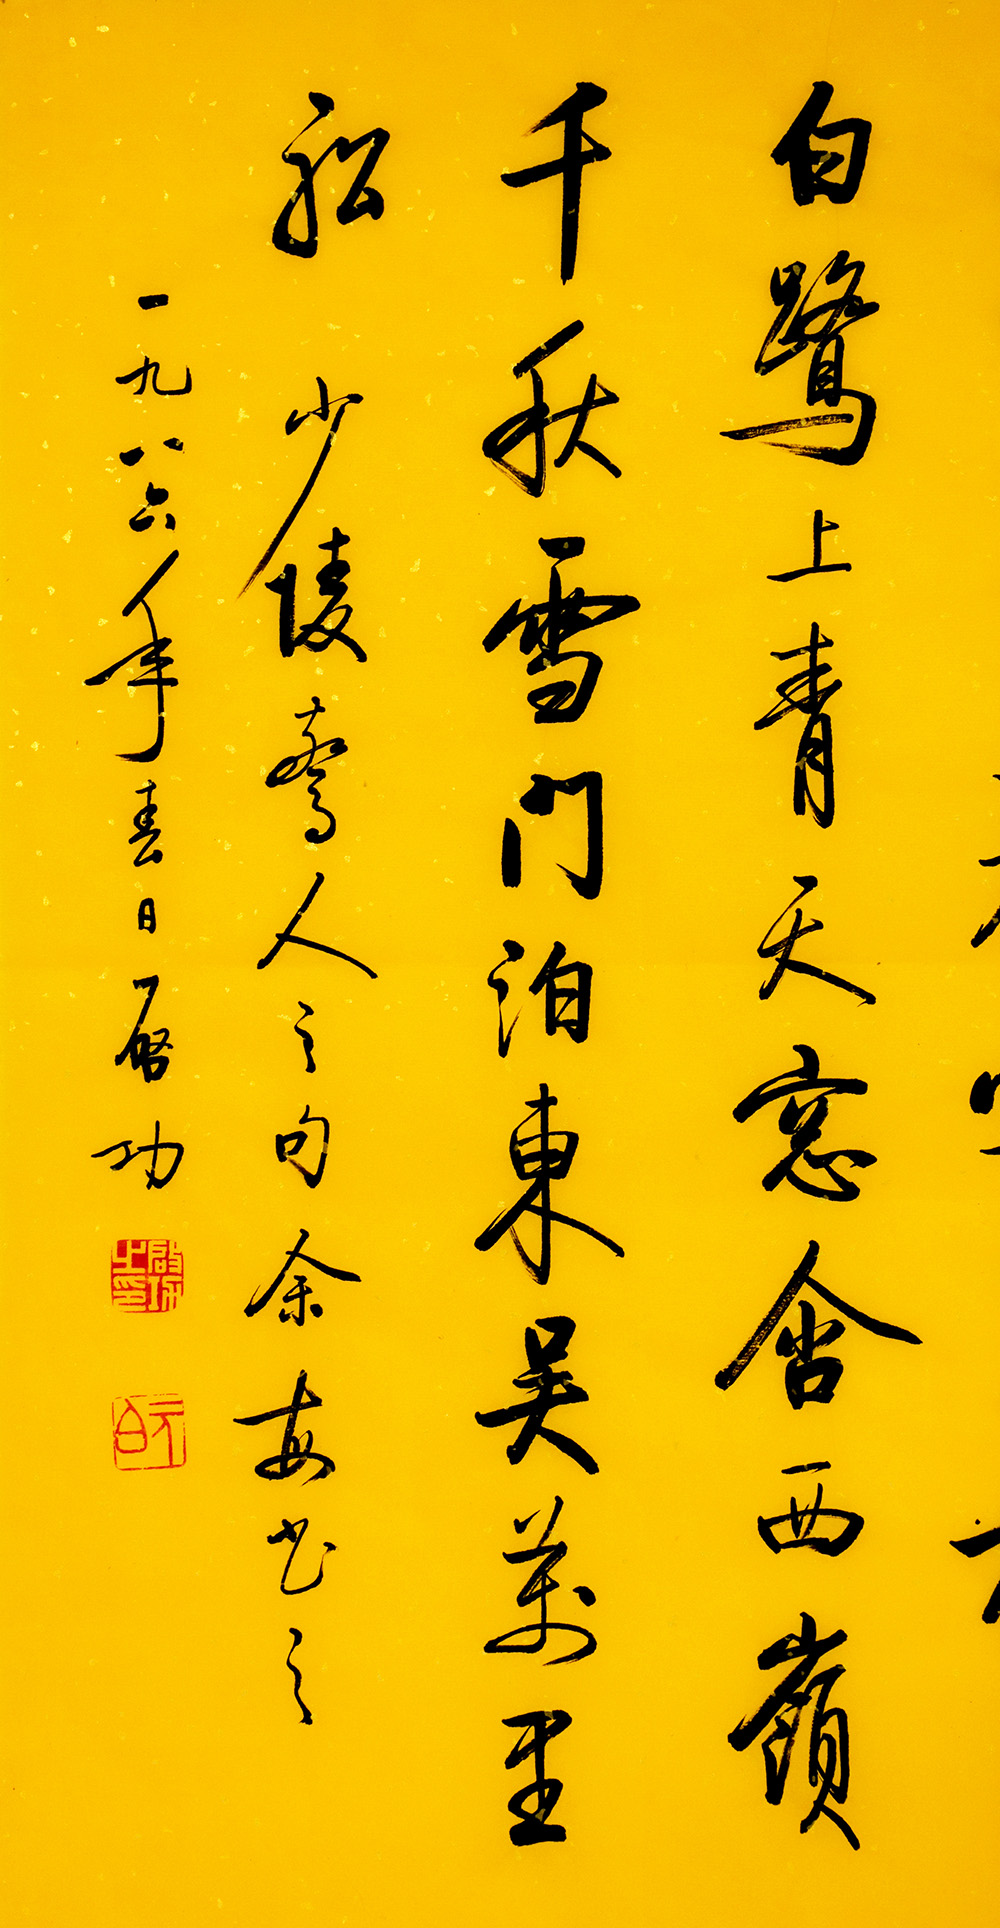 白鷺上青天窓含西嶺
千秋雪門泊東吳萬里
船 少陵驚人之句余每書之
一九八六年春日啓功
啟功之印
元白